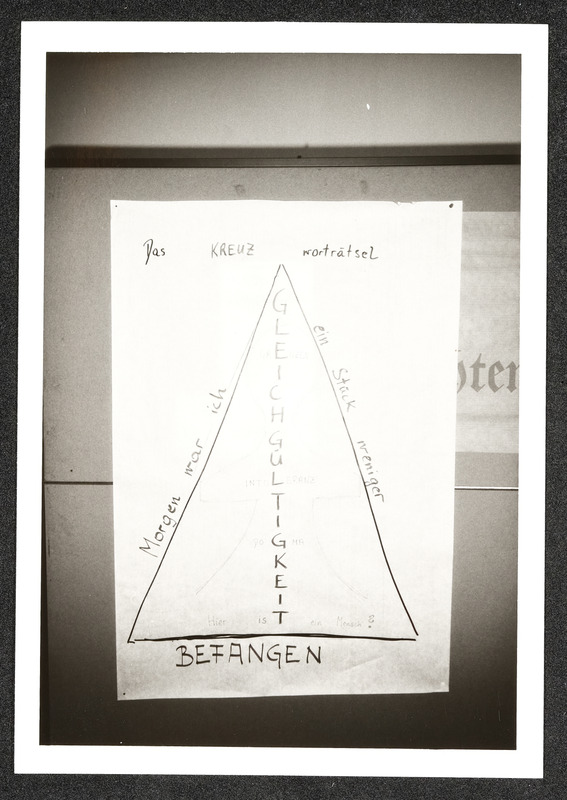 Das KREUZ worträtsel
GLEICHGÜLTIGKEIT
Morgen war ich
ein Stück weniger
Hier is ein Mensch?
BEFANGEN